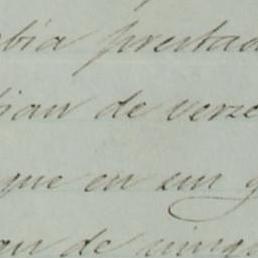 bia prestad
bian de verse
que en un g
an de ningu